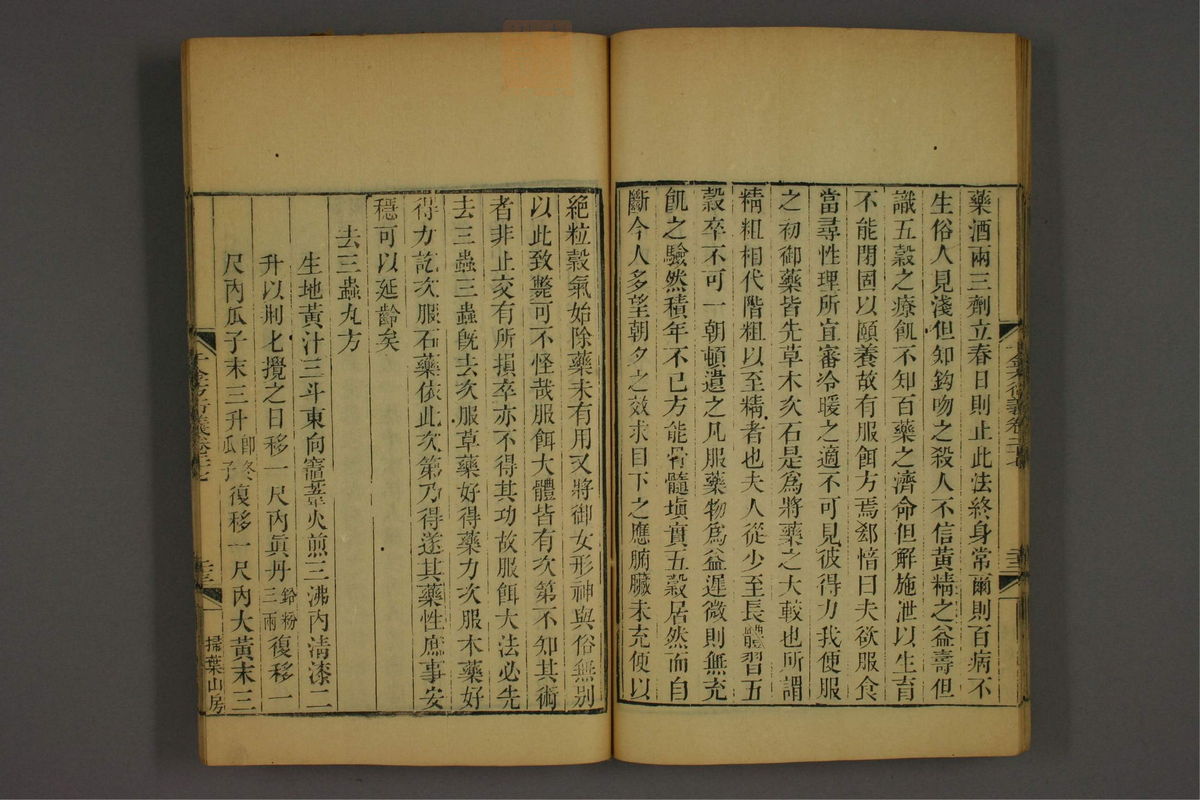 藥酒兩三劑立春日則止此法終身常爾則百病不
生俗人見淺但知鈎吻之殺人不信黃精之益壽但
識五穀之療飢不知百藥之濟命但解施泄以生育
不能閉固以頤養故有服餌方焉郄愔曰夫欲服食
當尋性理所宜審冷暖之適不可見彼得力我便服
之初御藥皆先草木次石是爲將藥之大較也所謂
精粗相代階粗以至精者也夫人從少至長體習五
穀卒不可一朝頓遺之凡服藥物爲益遲微則無充
飢之驗然積年不已方能骨髓塡實五穀居然而自
斷今人多望朝夕之效求目下之應腑臟未充便以
絕粒穀氣始除藥未有用又將御女形神與俗無別
以此致弊可不怪哉服餌大體皆有次第不知其術
者非止交有所損卒亦不得其功故服餌大法必先
去三蟲三蟲旣去次服草藥好得藥力次服木藥好
得力訖次服石藥依此次第乃得遂其藥性庶事安
穩可以延齡矣
去三蟲丸方
生地黃汁三斗東向竈葦火煎三沸內淸漆二
升以荆匕攪之日移一尺內眞丹三兩鉛粉復移一
尺內瓜子末三升卽冬瓜子復移一尺內大黃末三
掃葉山房